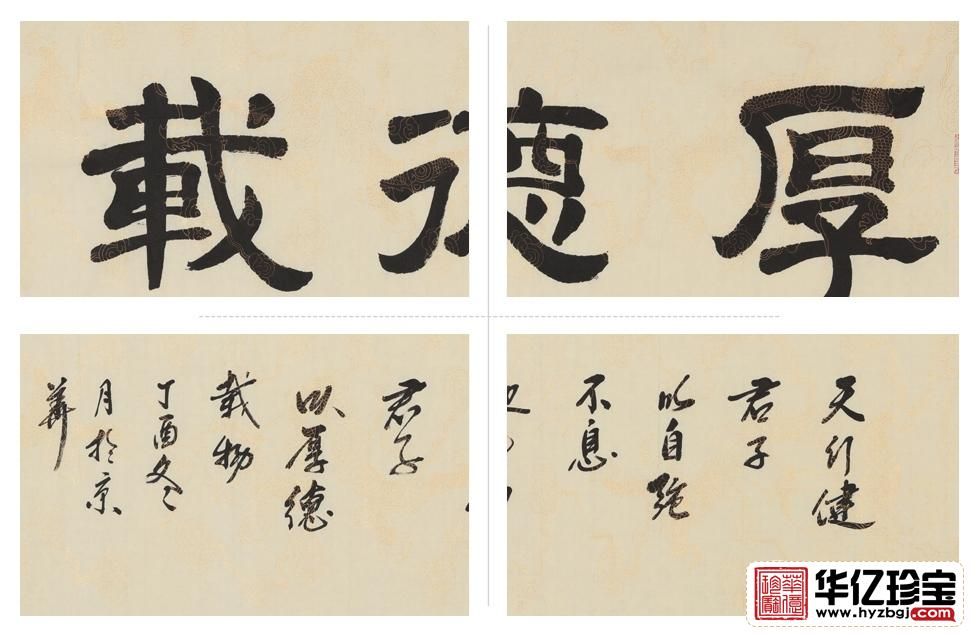 厚
德
載
天行健
君子
以自強
不息
君子
以厚德
載物
丁酉冬
月於京
華
华亿珍宝
www.hyzbgj.com